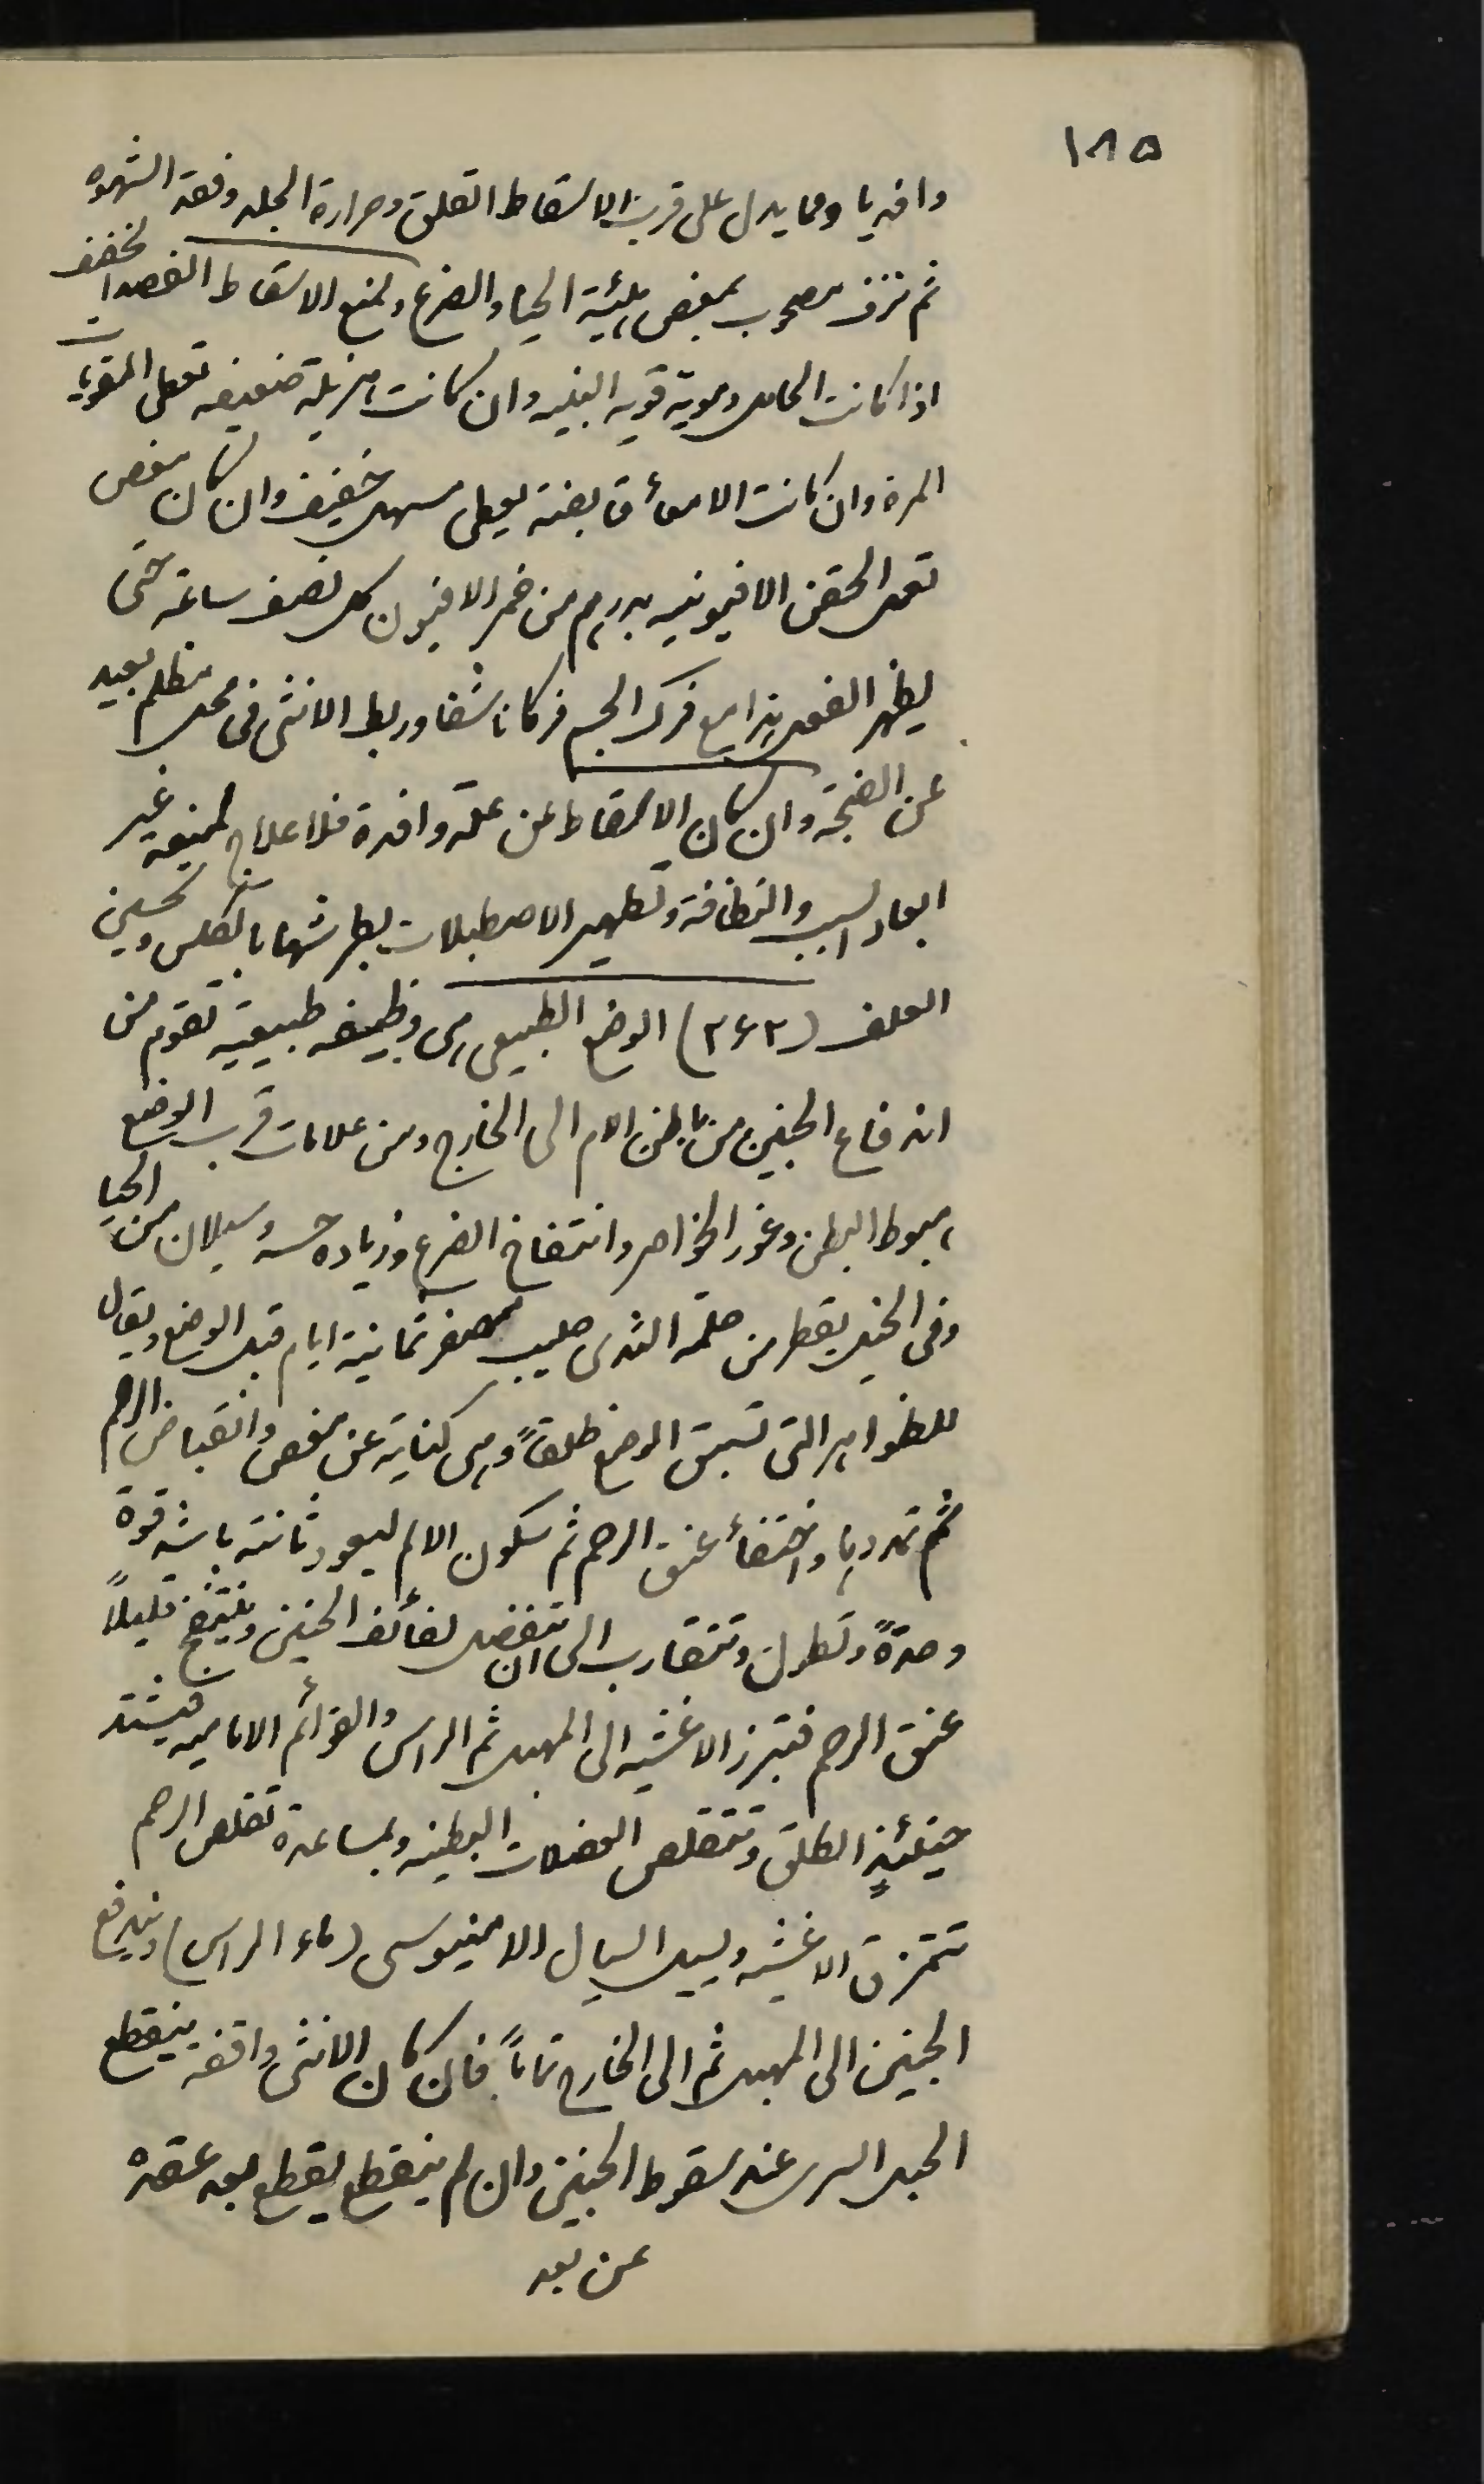 ١٨٥
وافديا ومما يدل على قرب الاسقاط القلق وحرارة الجلد وفقد الشهوه
ثم نزف مصحوب بمغص بهيئة الحيا والضرع ولمنع الاسقاط الفصد الخفيف
اذا كانت الحامل دموية قوية البنيه وان كانت هزيلة ضعيفه تعطى المقويات
المره وان كانت الامعأ قابضة يعطى مسهل خفيف وان كان مغص
تعمل الحقن الافيونيه بدرهم من خمر الافيون كل نصف ساعة حتى
يظهر الفعل هذا مع فرك الجسم فركا ناشفا وربط الانثى فى محل مظلم بعيد
عن الضجة وان كان الاسقاط عن علة وافدة فلا علاج لمنعه غير
ابعاد السبب والنظافة وتطهير الاصطبلات بطرشها بالكلس وتحسين
العلف (٢٦٢) الوضع الطبيعى هى وظيفه طبيعيه تقوم من
اندفاع الجنين من باطن الام الى الخارج ومن علامات قرب الوضع
هبوط البطن وغور الخواصر وانتفاخ الضرع وزيادة حسه وسيلان من الحيا
وفى الخيل يقطر من حلمة الثدى حليب مصفر ثمانية ايام قبل الوضع ويقال
للظواهر التى تسبق الوضع طلقاً وهى كناية عن مغص وانقباض الرحم
ثم تمددها واختفأ عنق الرحم ثم سكون الالم ليعود ثانية باشد قوة
وحدةً وتطول وتتقارب الى ان تنفصل لفائف الجنين وينفتح قليلاً
عنق الرحم فتبرز الاغشيه الى المهبل ثم الراس والقوائم الاماميه فيشتد
حينئذٍ الطلق وتتقلص العضلات البطنيه وبمساعدة تقلص الرحم
تتمزق الاغشيه ويسيل السيال الامنيوسى (ماء الراس) ويندفع
الجنين الى المهبل ثم الى الخارج تماماً. فان كان الانثى واقفه ينقطع
الحبل السرى عند سقوط الجنين وان لم ينقطع يقطع بعد عقده
عن بعد